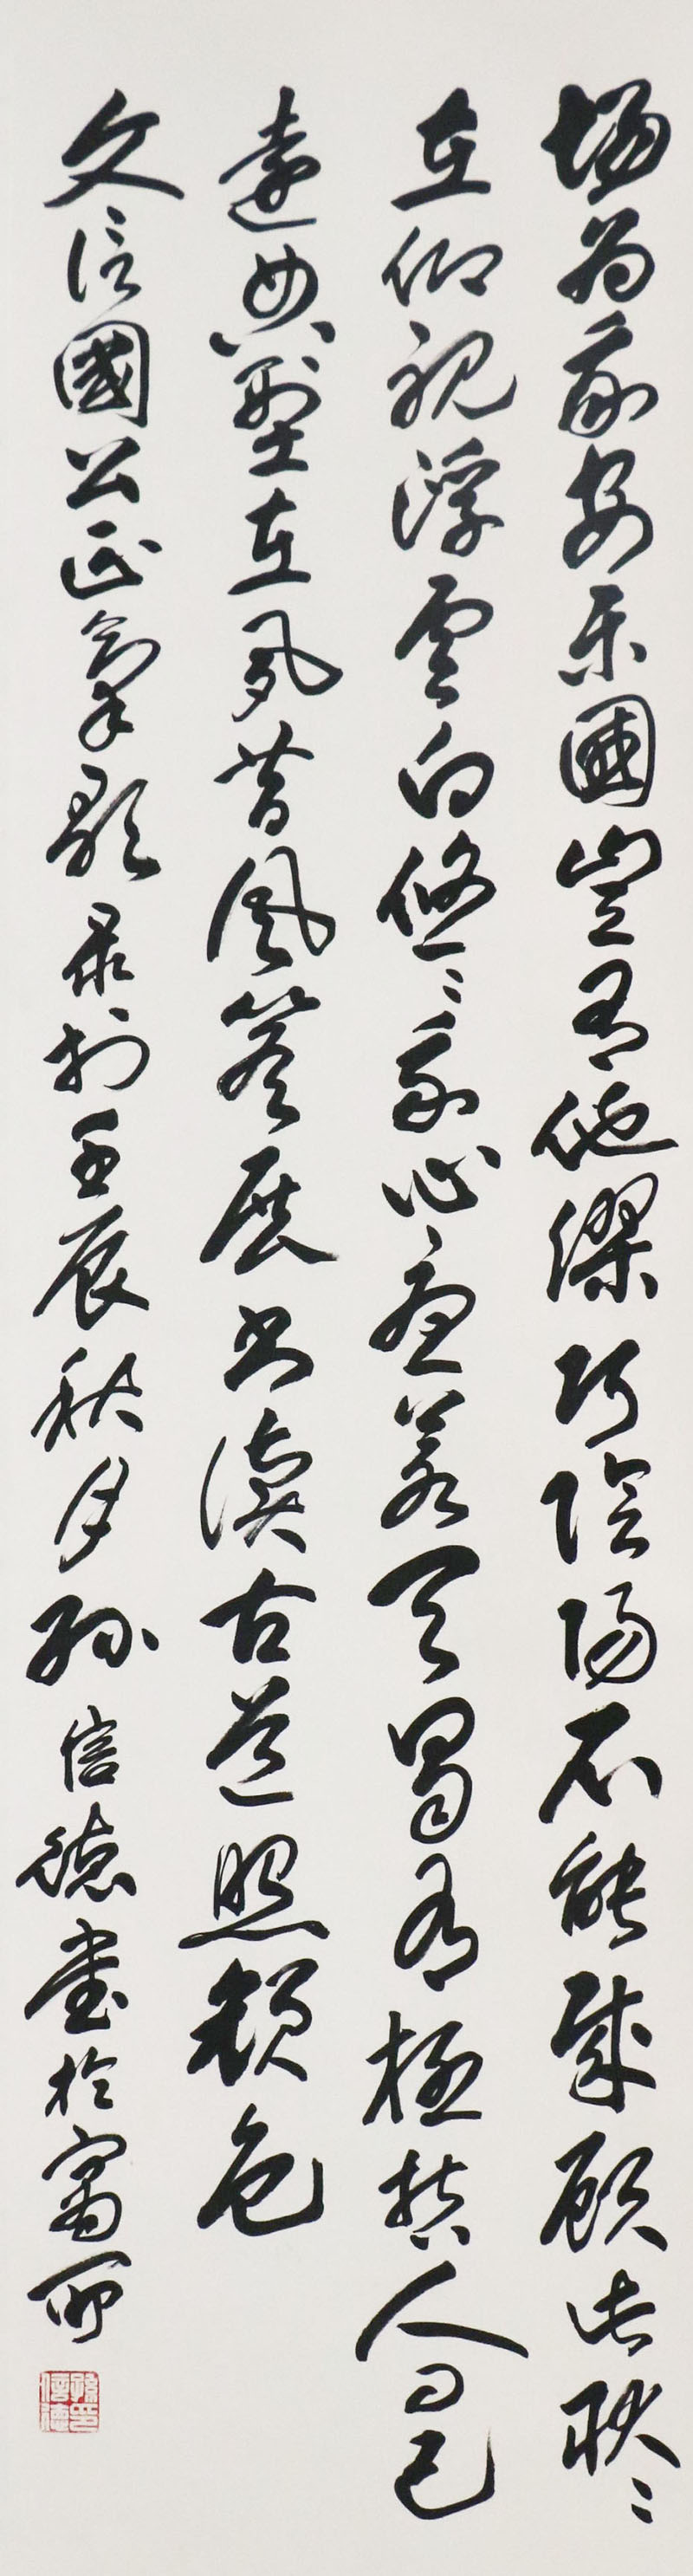 場为我安乐國豈有他繆巧陰陽不能賊顧此耿〻
在仰視浮雲白悠〻我心憂蒼天曷有極哲人日已
遠典型在夙昔風簷展书讀古道照顏色
文信國公正氣歌录于壬辰秋月孫信德書於寓所
孫信德印